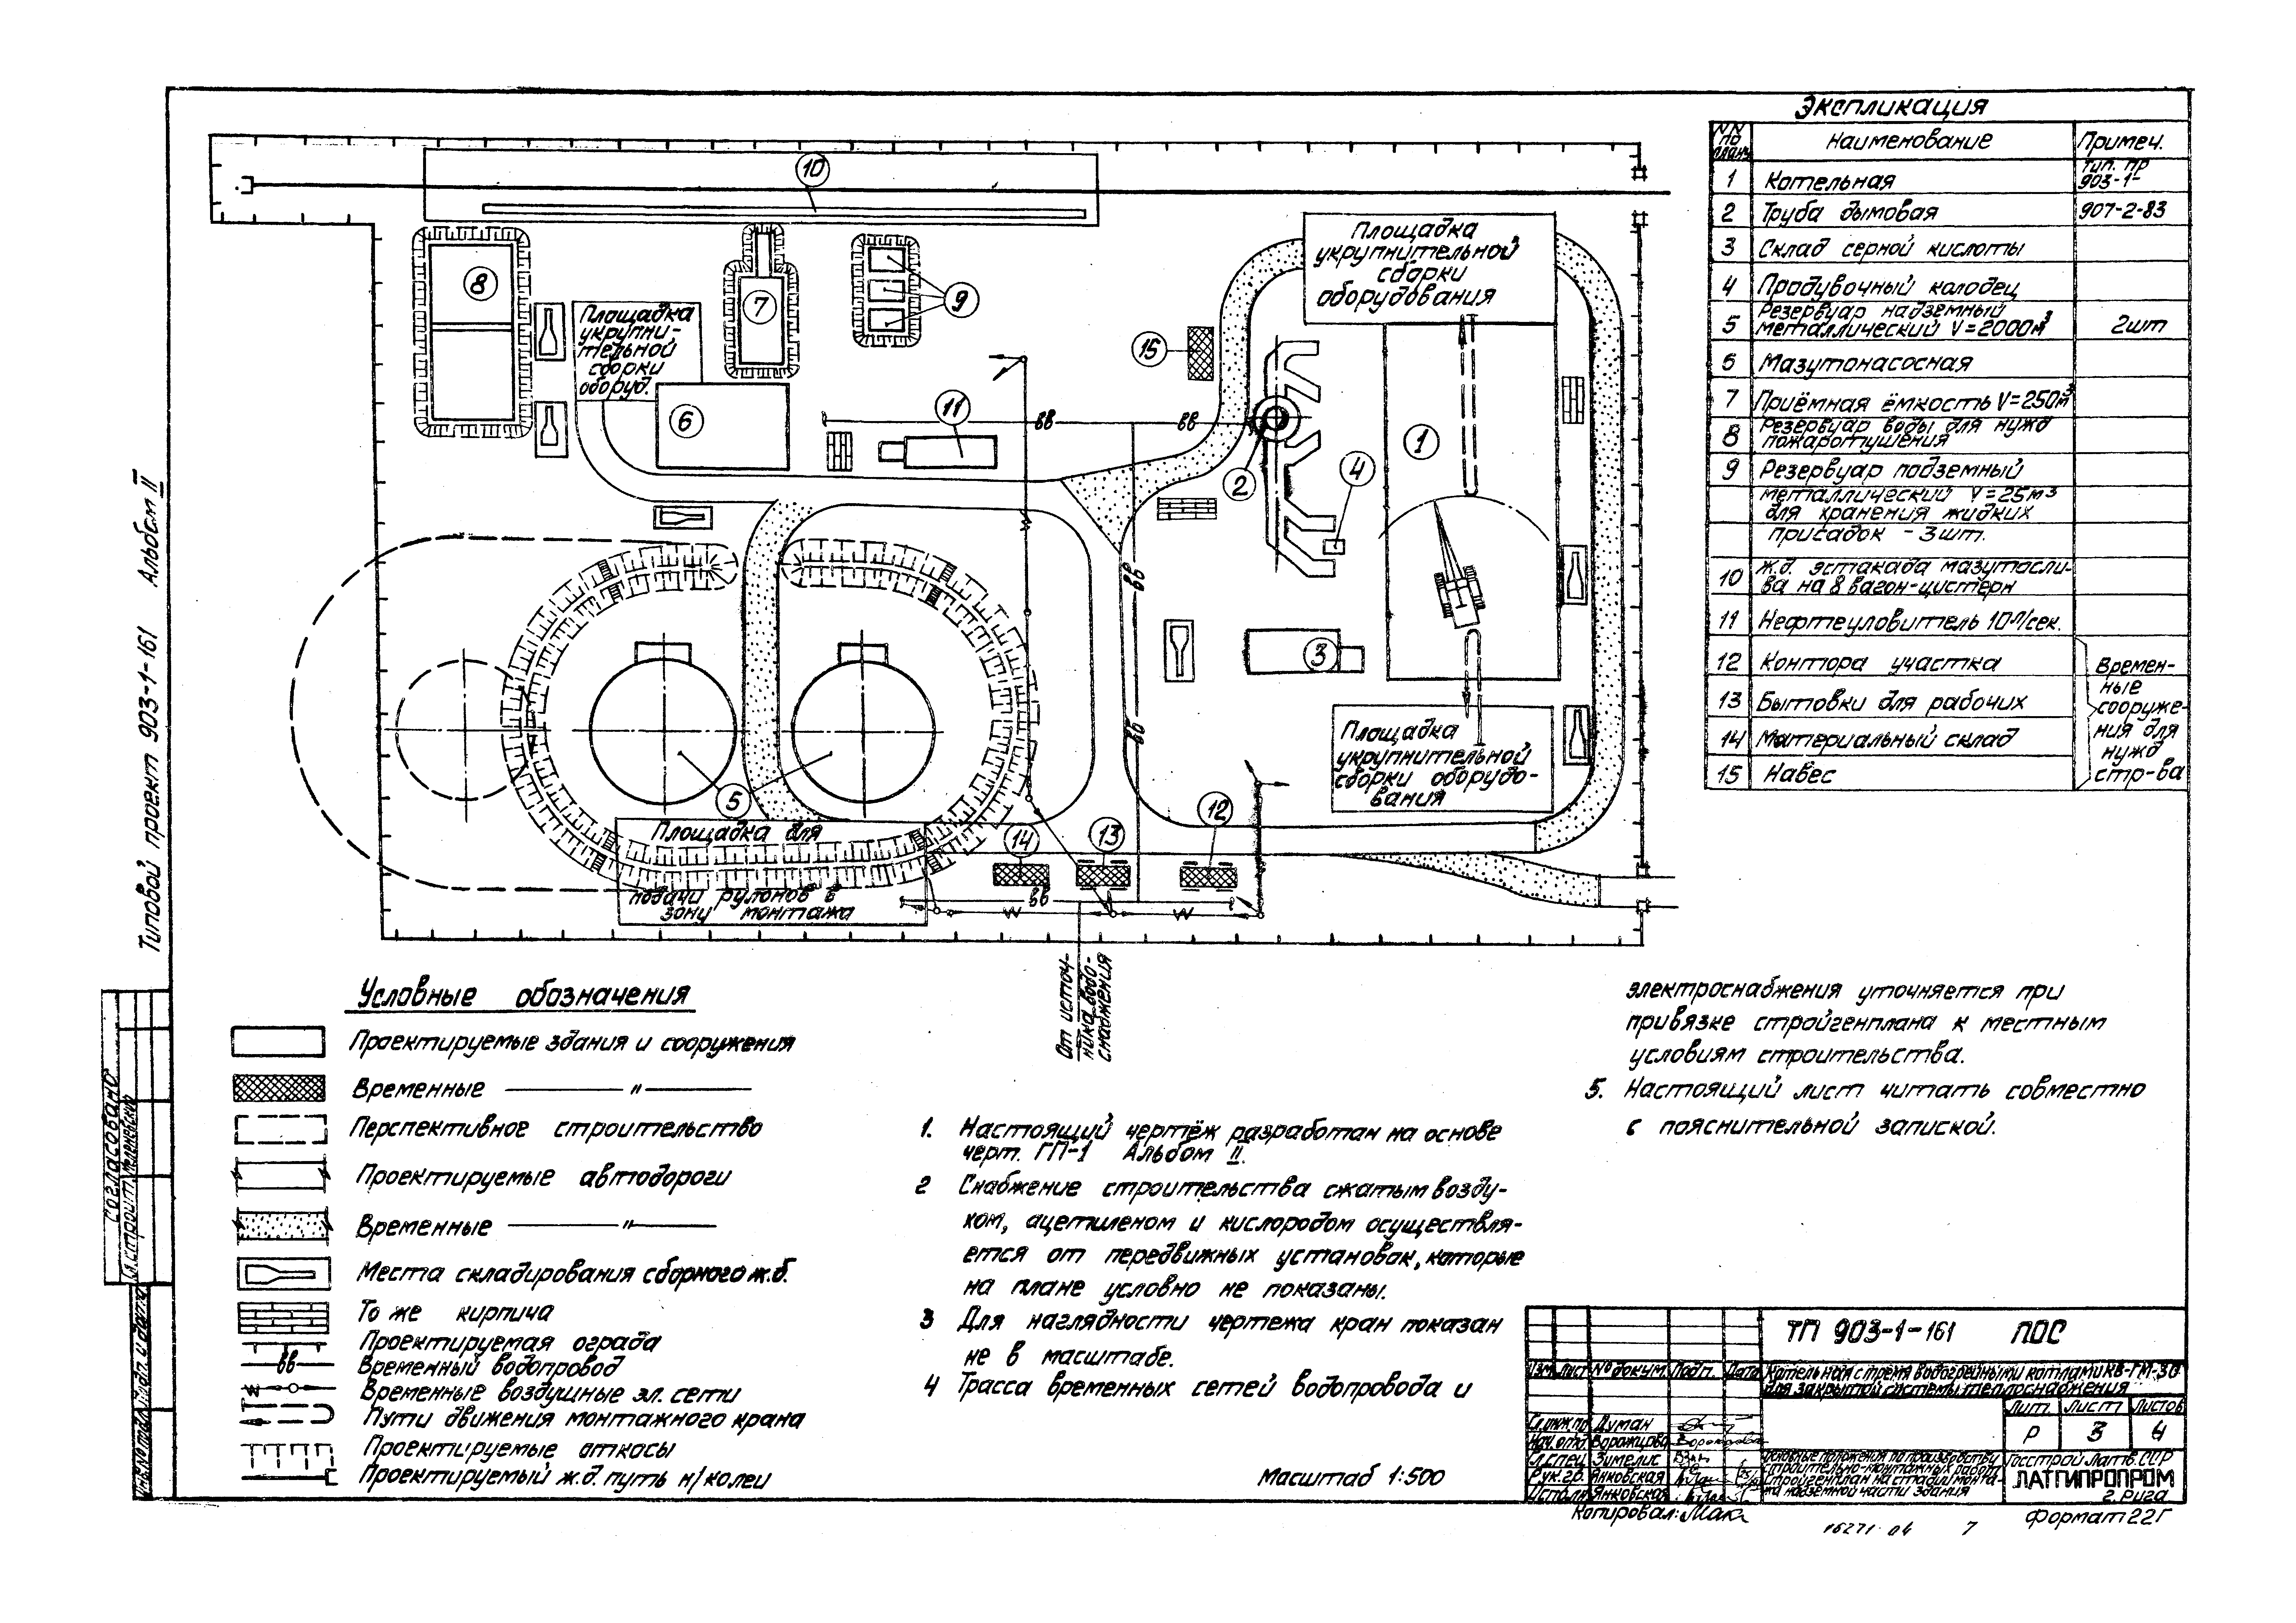 Типовой проект 903-1-161 Альбом II
Экспликация
NN по плану
Наименование
Примеч.
1 Котельная Тип. пр 903-1-
2 Труба дымовая 907-2-83
3 Склад серной кислоты
4 Продувочный колодец
5 Резервуар надземный
металлический V=2000м³ 2шт
6 Мазутонасосная
7 Приёмная ёмкость V=250м³
8 Резервуар воды для нужд
пожаротушения
9 Резервуар подземный
металлический V=25м³
для хранения жидких
присадок - 3шт.
10 Ж.д. эстакада мазутосли-
ва на 8 вагон-цистерн
11 Нефтеуловитель 10л/сек.
12 Контора участка
13 Бытовки для рабочих
14 Материальный склад
15 Навес
Времен-
ные
сооруже-
ния для
нужд
стр-ва
10
8
7
9
Площадка
укрупни-
тельной
сборки
оборуд.
6
11
15
Площадка
укрупнительной
сборки
оборудования
1
2
4
3
вв
вв
вв
вв
вв
5
Площадка для
подачи рулонов в
зону монтажа
14
13
12
Площадка
укрупнительной
сборки оборудо-
вания
От источ-
ника водо-
снабжения
Условные обозначения
Проектируемые здания и сооружения
Временные — " —
Перспективное строительство
Проектируемые автодороги
Временные — " —
Места складирования сборного ж.б.
То же кирпича
Проектируемая ограда
вв Временный водопровод
Временные воздушные эл. сети
Пути движения монтажного крана
Проектируемые откосы
Проектируемый ж.д. путь н/колеи
1. Настоящий чертёж разработан на основе
черт. ГП-1 Альбом II.
2 Снабжение строительства сжатым возду-
хом, ацетиленом и кислородом осуществля-
ется от передвижных установок, которые
на плане условно не показаны.
3 Для наглядности чертежа кран показан
не в масштабе.
4 Трасса временных сетей водопровода и
электроснабжения уточняется при
привязке стройгенплана к местным
условиям строительства.
5. Настоящий лист читать совместно
с пояснительной запиской.
Масштаб 1:500
ТП 903-1-161 ПОС
Изм. Лист № докум. Подп. Дата
Котельная с тремя водогрейными котлами КВ-ГМ-30
для закрытой системы теплоснабжения
Лит. Лист Листов
Р 3 4
Гл.инж.пр Думан
Нач.отд. Ворожцова
Гл.спец. Зимелис
Рук.гр. Янковская
Исполн. Янковская
Основные положения по производству
строительно-монтажных работ.
Стройгенплан на стадии монта-
жа надземной части здания
Госстрой Латв.ССР
ЛАТГИПРОПРОМ
г. Рига
Копировал: Мак
16271-04 7
Формат 22Г
Согласовано:
Инв.№ подл. Подп. и дата